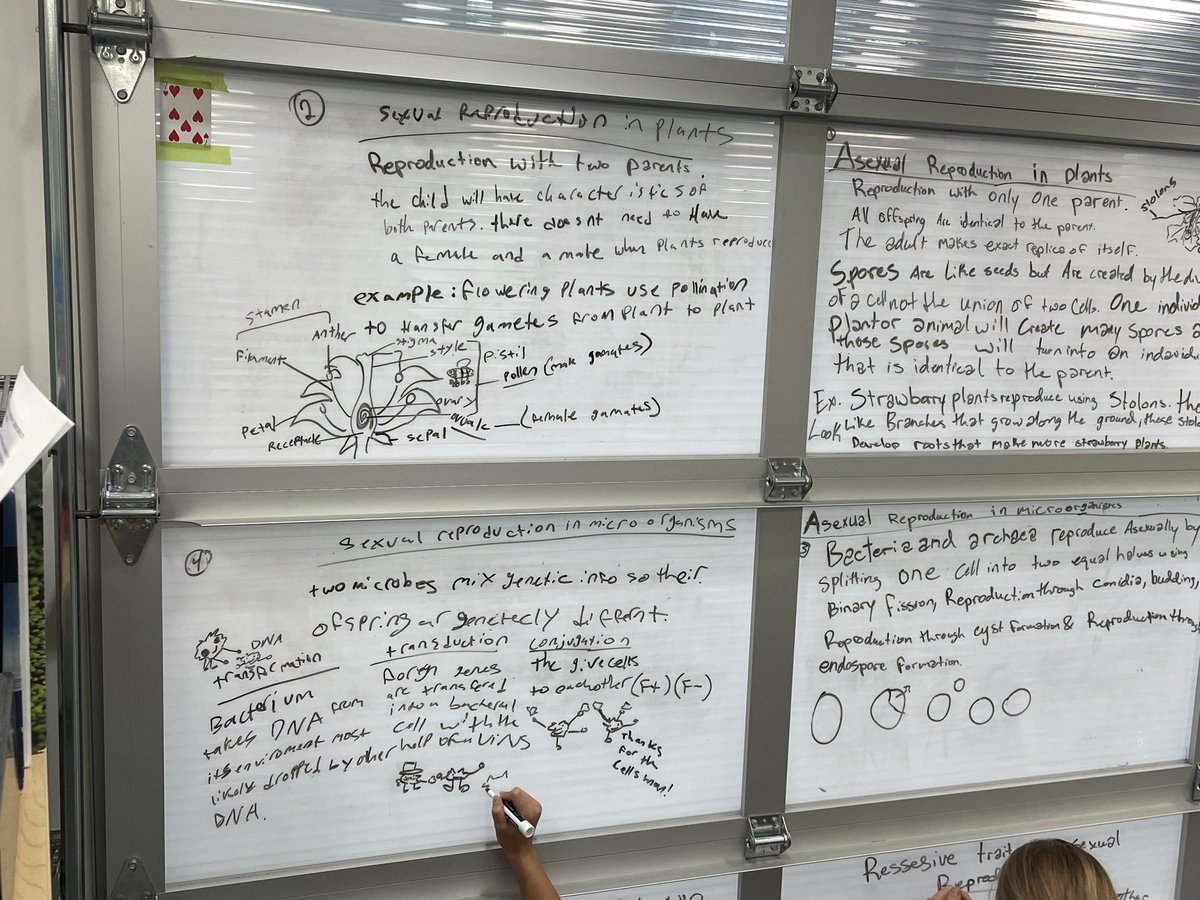 2
sexual Reproduction in plants
Reproduction with two parents.
the child will have characteristics of
both parents. there doesnt need to have
a female and a male when plants reproduce
example: flowering plants use pollination
to transfer gametes from plant to plant
stamen
Anther
Filament
stigma
style
pistil
pollen (male gamates)
ovary
ovule
(female gamates)
Petal
Receptacle
sepal
Asexual Reproduction in plants
Reproduction with only one parent.
All offspring are identical to the parent.
The adult makes exact replica of itself.
Stolons
Spores Are like seeds but Are created by the
of a cell not the union of two cells. One
Plant or animal will create many spores
those spores will turn into an
that is identical to the parent.
Ex. Strawbarry plants reproduce using Stolons.
Look Like Branches that grow along the ground, these
Develop roots that make more strawberry plants.
4
sexual reproduction in micro organisms
two microbes mix genetic info so their
ofspring ar genetecly different.
DNA
transformation
Bacterium
takes DNA from
its enviroment most
likely dropped by other
DNA.
transduction
Forign genes
are transfered
into a bacteral
cell with the
help of a virus
conjugation
the give cells
to eachother (F+) (F-)
thanks
for the
cells man!
Asexual Reproduction in microorganisms
3
Bacteria and archaea reproduce Asexually by
splitting one cell into two equal halves using
Binary fission, Reproduction through conidia, budding,
Reproduction through cyst formation & Reproduction through
endospore formation.
Ressesive